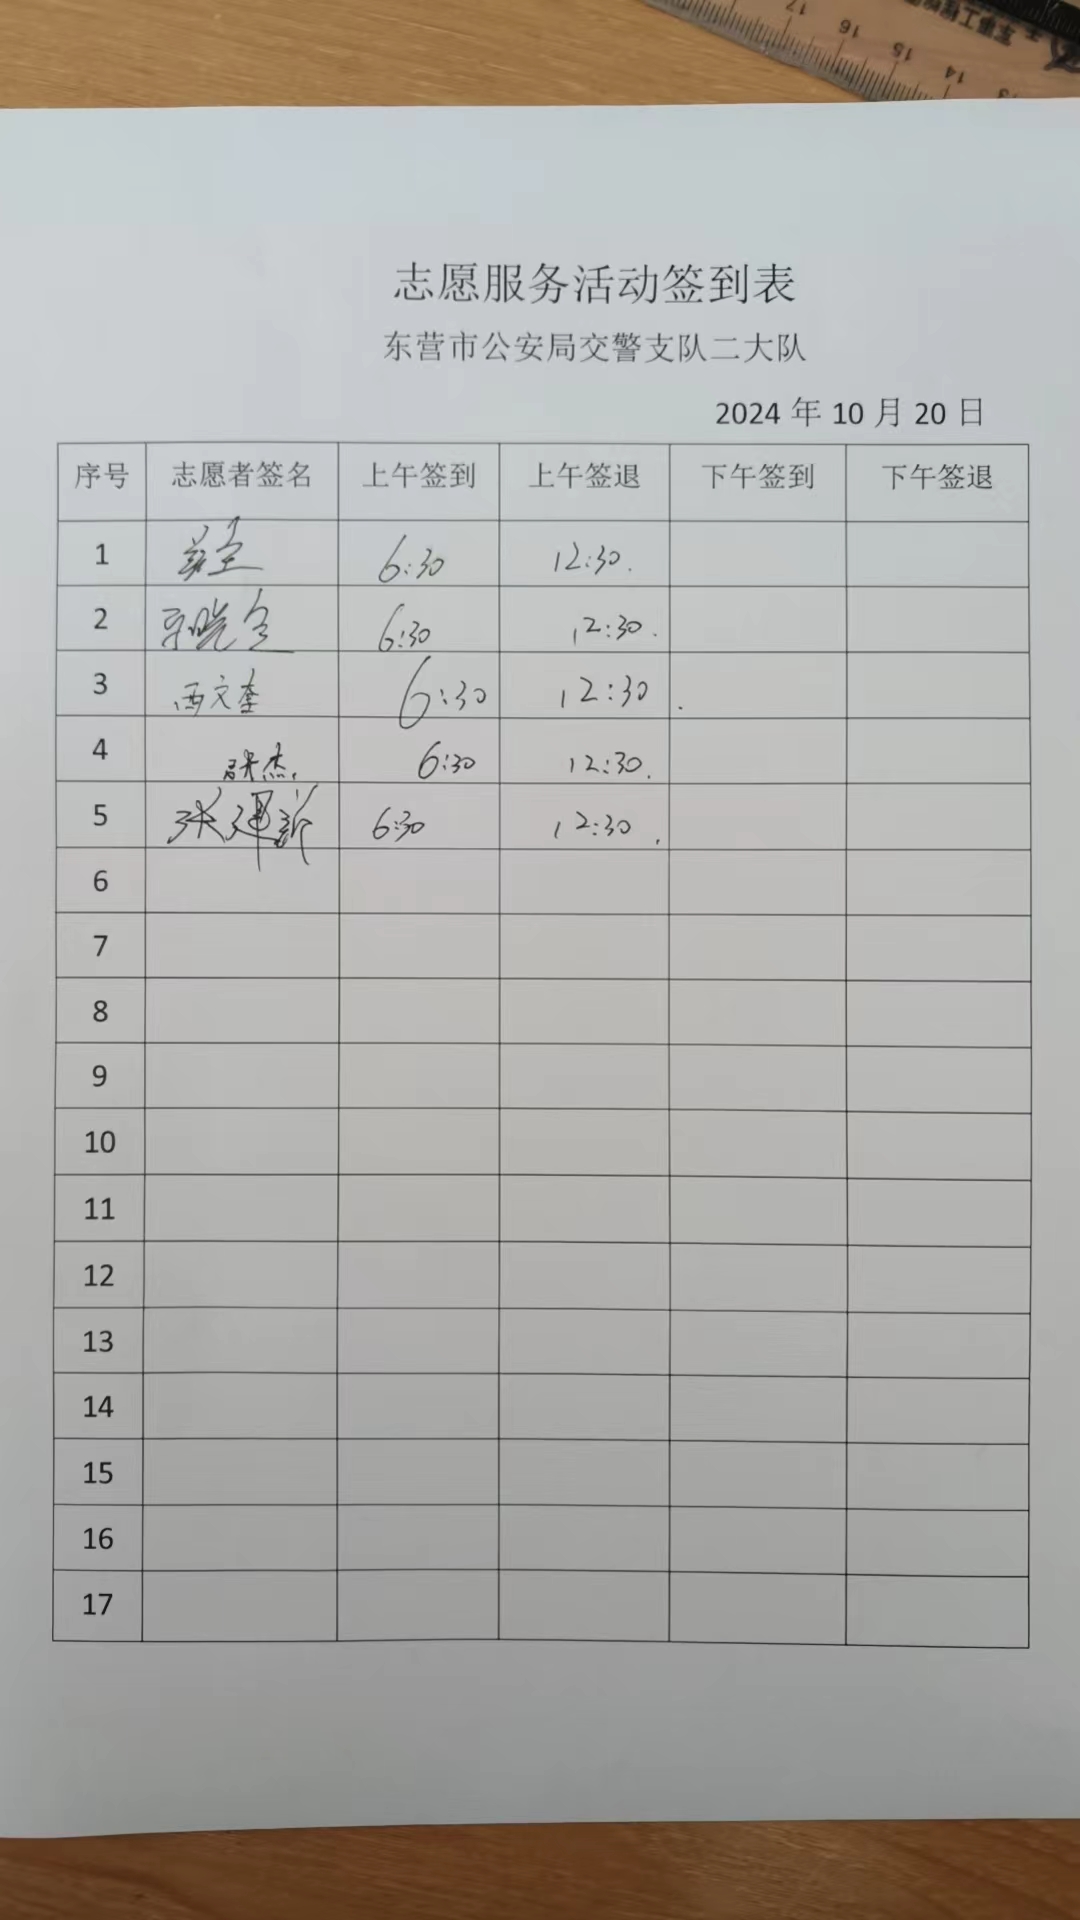 17 16 15 14 13
志愿服务活动签到表
东营市公安局交警支队二大队
2024 年 10 月 20 日
序号 志愿者签名 上午签到 上午签退 下午签到 下午签退
1 6:30 12:30.
2 6:30 12:30.
3 西文奎 6:30 12:30.
4 张杰. 6:30 12:30.
5 张建新 6:30 12:30.
6
7
8
9
10
11
12
13
14
15
16
17